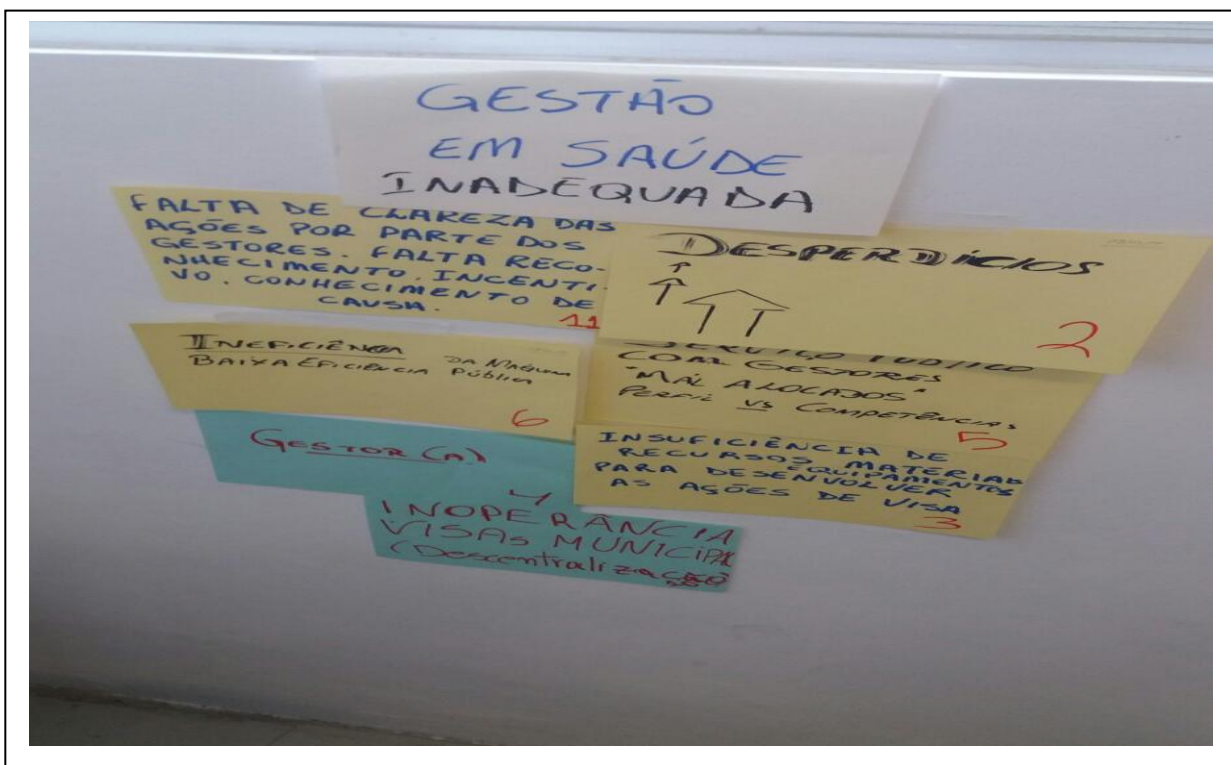 GESTÃO
EM SAÚDE
INADEQUADA
FALTA DE CLAREZA DAS
AÇÕES POR PARTE DOS
GESTORES. FALTA RECO-
NHECIMENTO. INCENTI-
VO. CONHECIMENTO DE
CAUSA.
11
DESPERDÍCIOS
2
INEFICIÊNCIA
BAIXA EFICIÊNCIA DA MÁQUINA
PÚBLICA
6
SERVIÇO PÚBLICO
COM GESTORES
"MAL ALOCADOS"
PERFIL VS COMPETÊNCIAS
5
GESTOR(A)
INSUFICIÊNCIA DE
RECURSOS MATERIAIS
EQUIPAMENTOS
PARA DESENVOLVER
AS AÇÕES DE VISA
3
INOPERÂNCIA
VISAS MUNICIPAL
(Descentralização